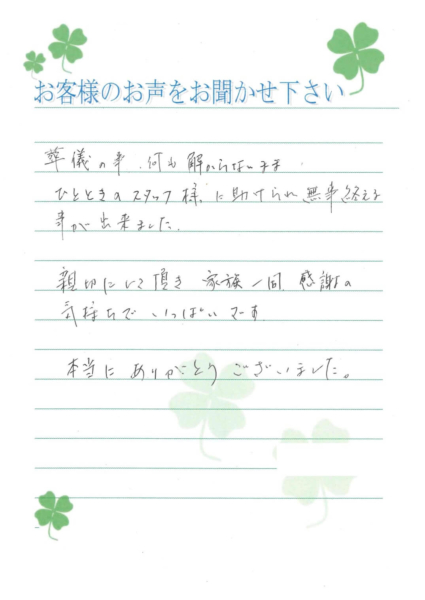 お客様のお声をお聞かせ下さい
葬儀の事、何も解からないまま
ひとときのスタッフ様に助けられ無事終える
事が出来ました。
親切にして頂き 家族一同 感謝の
気持ちで いっぱいです
本当に ありがとう ございました。